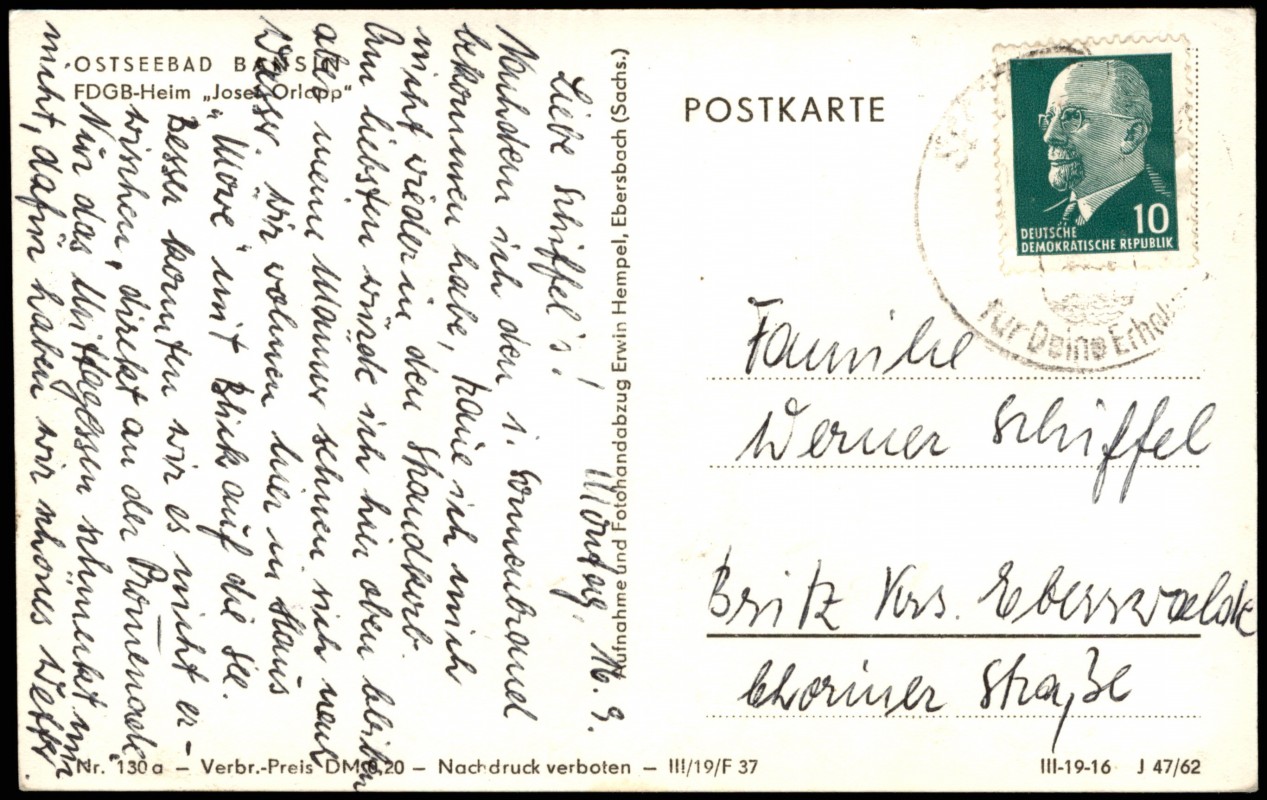 OSTSEEBAD BANSIN
FDGB-Heim „Josef Orlopp“
POSTKARTE
10
DEUTSCHE
DEMOKRATISCHE REPUBLIK
für Deine Erhol
Familie
Werner Schiffel
Britz Krs. Eberswalde
Choriner Straße
Montag, 16. 9.
Liebe Schiffel's!
Nachdem ich den 1. Sonnenbrand
bekommen habe, traue ich mich
nicht wieder in den Strandkorb.
Am liebsten würde ich hier oben bleiben
aber meine Männer sehnen sich nach
Wasser. Wir wohnen hier im Haus
„Möwe“ mit Blick auf die See.
Besser konnten wir es nicht er-
wischen, direkt an der Promenade.
Nur das Mittagessen schmeckt mir
nicht, dafür haben wir schönes Wetter.
Aufnahme und Fotohandabzug Erwin Hempel, Ebersbach (Sachs.)
Nr. 130a – Verbr.-Preis DM 0,20 – Nachdruck verboten – III/19/F 37
III-19-16 J 47/62